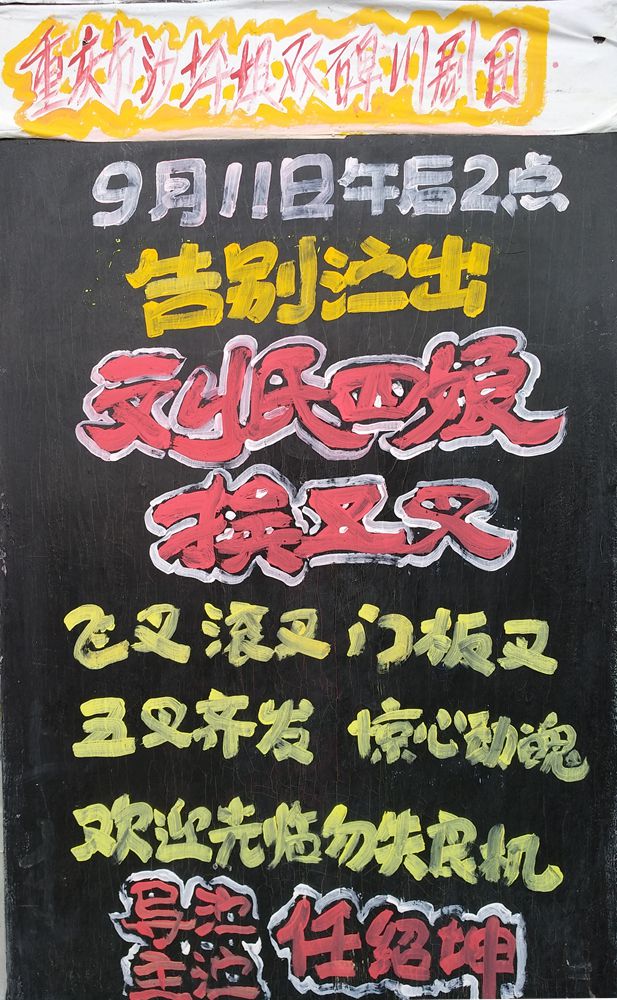 重庆市沙坪坝双碑川剧团
9月11日午后2点
告别演出
刘氏四娘
挨叉叉
飞叉 滚叉 门板叉
五叉齐发 惊心动魄
欢迎光临勿失良机
导演
主演
任绍坤